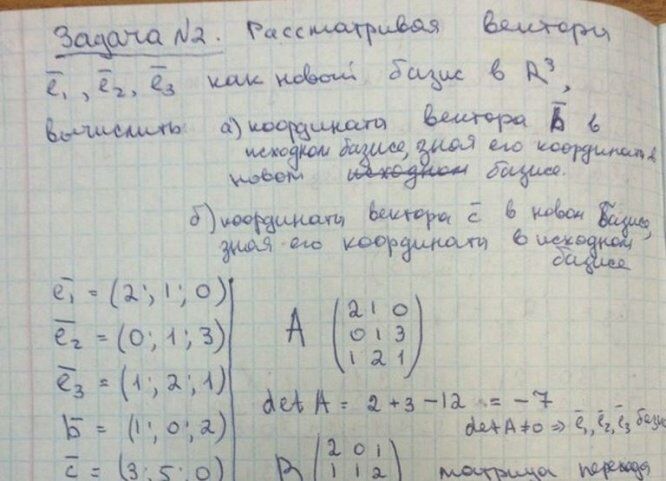 Задача N2. Рассматривая вектори
e̅₁, e̅₂, e̅₃ как новый базис в R³,
вычислить а) координаты вектора b̅ в
исходном базисе, зная его координаты в
новом исходном базисе.
б) координаты вектора c̅ в новом базисе,
зная его координаты в исходном
базисе
e̅₁ = (2; 1; 0)
e̅₂ = (0; 1; 3)
e̅₃ = (1; 2; 1)
b̅ = (1; 0; 2)
c̅ = (3; 5; 0)
A (2 1 0
0 1 3
1 2 1)
det A = 2 + 3 - 12 = -7
det A ≠ 0 => e̅₁, e̅₂, e̅₃ базис
B (2 0 1
1 1 2
матрица перехода